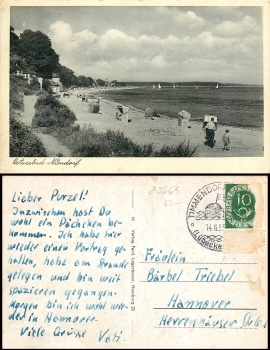 Ostseebad Niendorf
Lieber Purzel!
Inzwischen hast Du
wohl ein Päckchen be-
kommen. Ich habe hier
wieder einen Vortrag ge-
halten, habe am Strande
gelegen und bin weit
spazieren gegangen.
Morgen bin ich wohl wie-
der in Hannover.
Viele Grüsse Vati.
Verlag Ferd. Lagerbauer, Hamburg 39
TIMMENDORF
14.8.5
LÜBECKER
10
Fräulein
Bärbel Triebel
Hannover
Herrenhäuser Str.